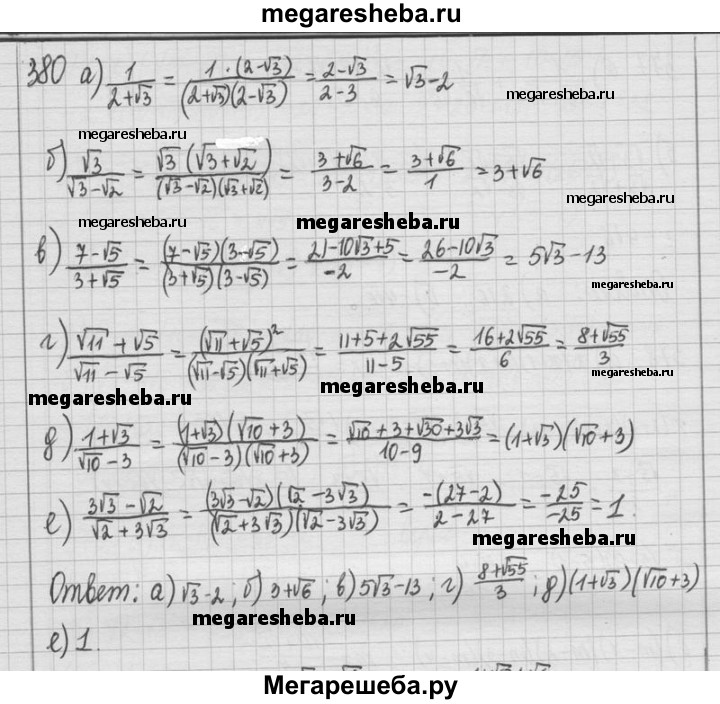 megaresheba.ru
380 а) 1/(2+√3) = 1·(2-√3)/((2+√3)(2-√3)) = (2-√3)/(2-3) = √3-2
megaresheba.ru
megaresheba.ru
б) √3/(√3-√2) = √3(√3+√2)/((√3-√2)(√3+√2)) = (3+√6)/(3-2) = (3+√6)/1 = 3+√6
megaresheba.ru
megaresheba.ru
megaresheba.ru
в) (7-√5)/(3+√5) = (7-√5)(3-√5)/((3+√5)(3-√5)) = (21-10√3+5)/-2 = (26-10√3)/-2 = 5√3-13
megaresheba.ru
г) (√11+√5)/(√11-√5) = (√11+√5)²/((√11-√5)(√11+√5)) = (11+5+2√55)/(11-5) = (16+2√55)/6 = (8+√55)/3
megaresheba.ru
megaresheba.ru
megaresheba.ru
д) (1+√3)/(√10-3) = (1+√3)(√10+3)/((√10-3)(√10+3)) = (√10+3+√30+3√3)/(10-9) = (1+√3)(√10+3)
megaresheba.ru
е) (3√3-√2)/(√2+3√3) = (3√3-√2)(√2-3√3)/((√2+3√3)(√2-3√3)) = -(27-2)/(2-27) = -25/-25 = 1.
megaresheba.ru
Ответ: а) √3-2; б) 3+√6; в) 5√3-13; г) (8+√55)/3; д) (1+√3)(√10+3)
megaresheba.ru
е) 1.
megaresheba.ru
megaresheba.ru
Мегарешеба.ру